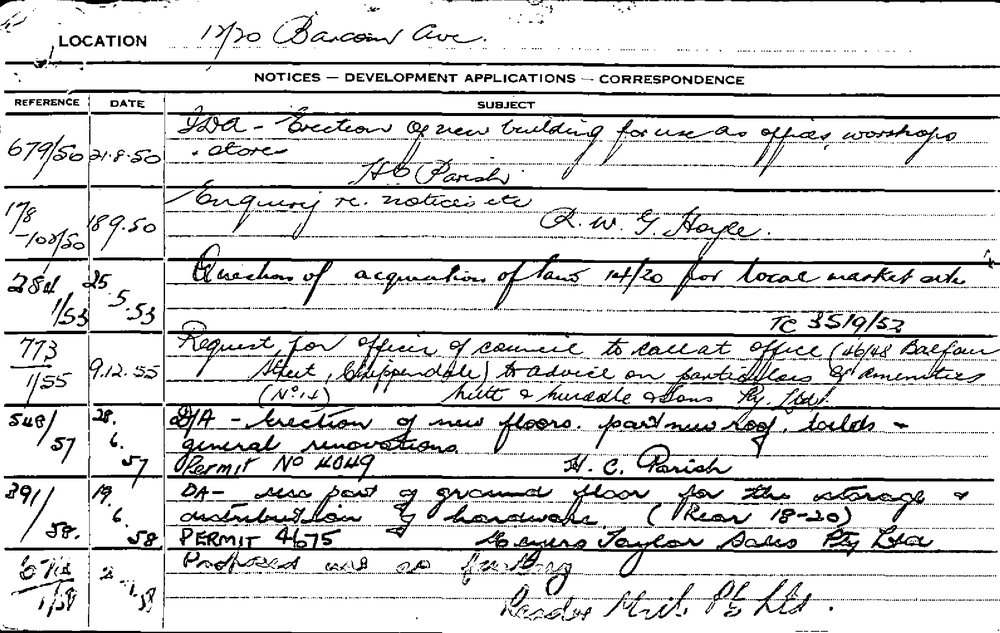 LOCATION 12/20 Barcom Ave.
NOTICES — DEVELOPMENT APPLICATIONS — CORRESPONDENCE
REFERENCE DATE SUBJECT
679/50 21.8.50 IDA - Erection of new building for use as offices, worshops
+ stores
H C Parish
178 Enquiry re. notices etc
-102/50 18 9.50 R. W. G. Hoyle.
284 25 Question of acquisition of land 14/20 for local market site
1/53 .5.53
TC 3519/53
773 Request for officer of council to call at office (46/48 Balfour
1/55 9.12.55 Street, Chippendale) to advice on particulars of amenities
(No 14) & Sons Pty. Ltd.
548/ 28. D/A - Erection of new floors. part new roof.
57 6. general renovations
57 Permit No 4049 H. C. Parish
391/ 19. DA - use part of ground floor for the storage &
6. distribution of hardware. (Rear 18-20)
58. 58 PERMIT 4675 Taylor Sales Pty Ltd
Proposed use
1/58 Pty Ltd.